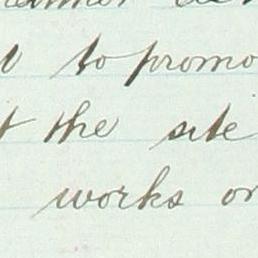 to promo
the site
works or